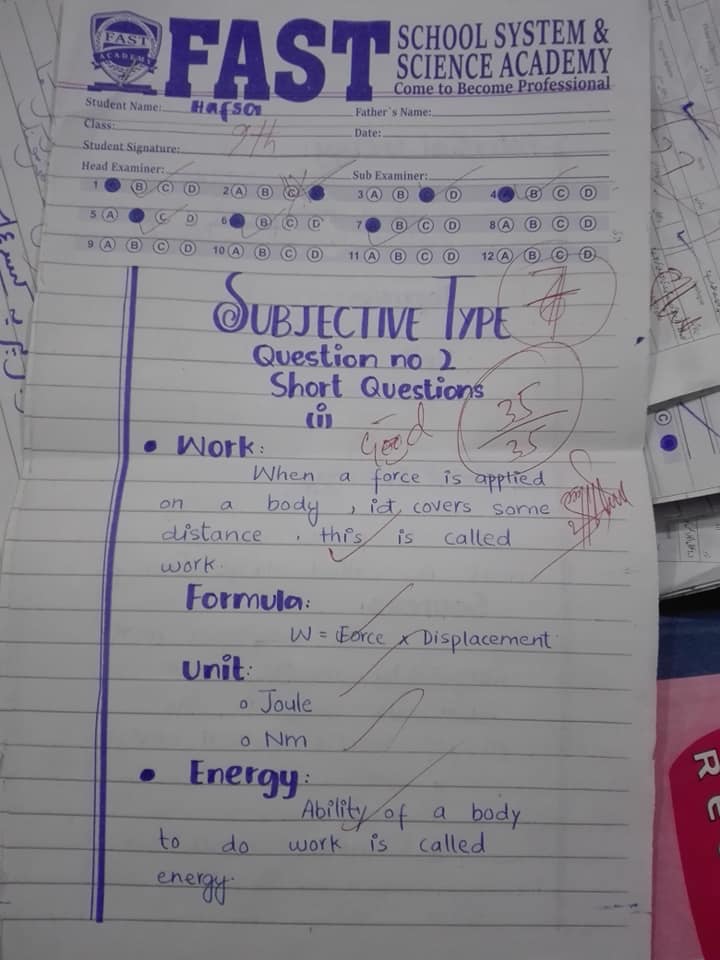 FAST
ACADEMY
FAST
SCHOOL SYSTEM &
SCIENCE ACADEMY
Come to Become Professional
Student Name: Hafsa
Father's Name:
Class: 9th
Date:
Student Signature:
Head Examiner:
Sub Examiner:
1 B C D 2 A B C 3 A B D 4 B C D
5 A C D 6 B C D 7 B C D 8 A B C D
9 A B C D 10 A B C D 11 A B C D 12 A B C D
SUBJECTIVE TYPE
Question no 2
Short Questions
(i)
Good
35
35
• Work:
When a force is applied
on a body , idt covers some
distance , this is called
work.
Formula:
W = Force x Displacement
Unit:
o Joule
o Nm
• Energy:
Ability of a body
to do work is called
energy.